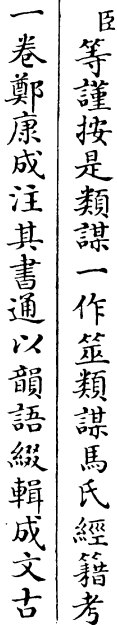 臣等謹按是類謀一作筮類謀馬氏經籍考
一卷鄭康成注其書通以韻語綴輯成文古